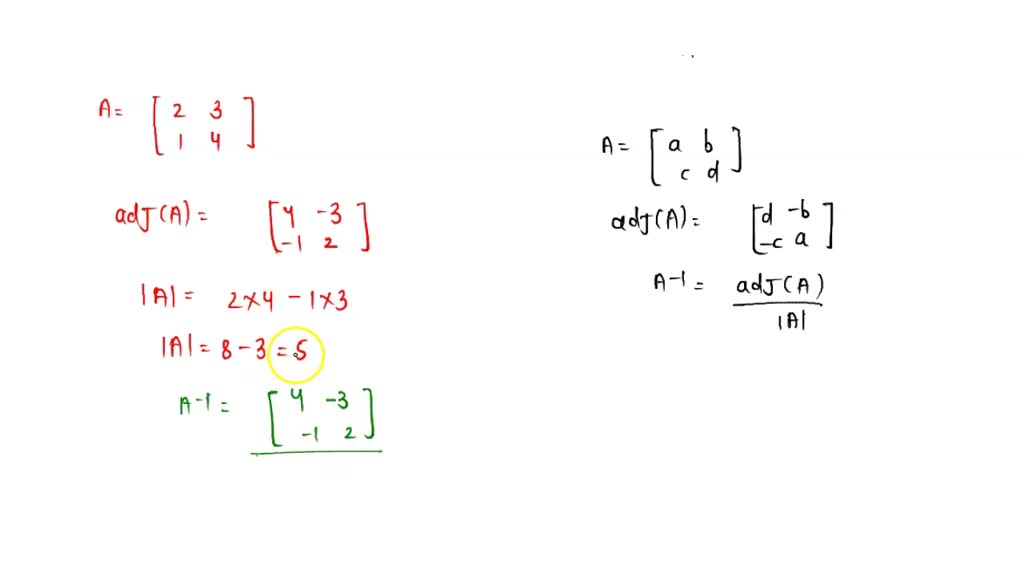 A = [ 2 3
1 4 ]
adJ(A) = [ 4 -3
-1 2 ]
|A| = 2×4 - 1×3
|A| = 8 - 3 = 5
A-1 = [ 4 -3
-1 2 ]
A = [ a b
c d ]
adJ(A) = [ d -b
-c a ]
A-1 = adJ(A)
|A|